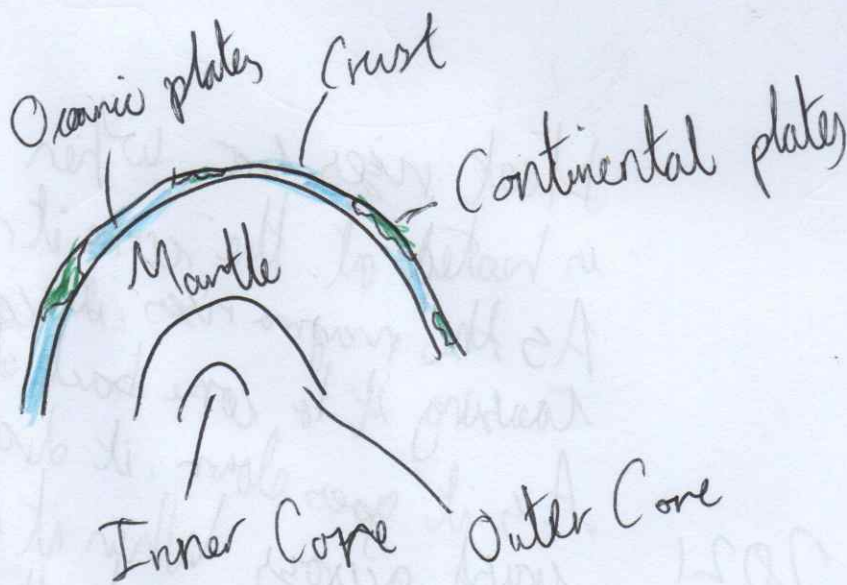 Oceanic plates
Crust
Continental plates
Mantle
Inner Core
Outer Core